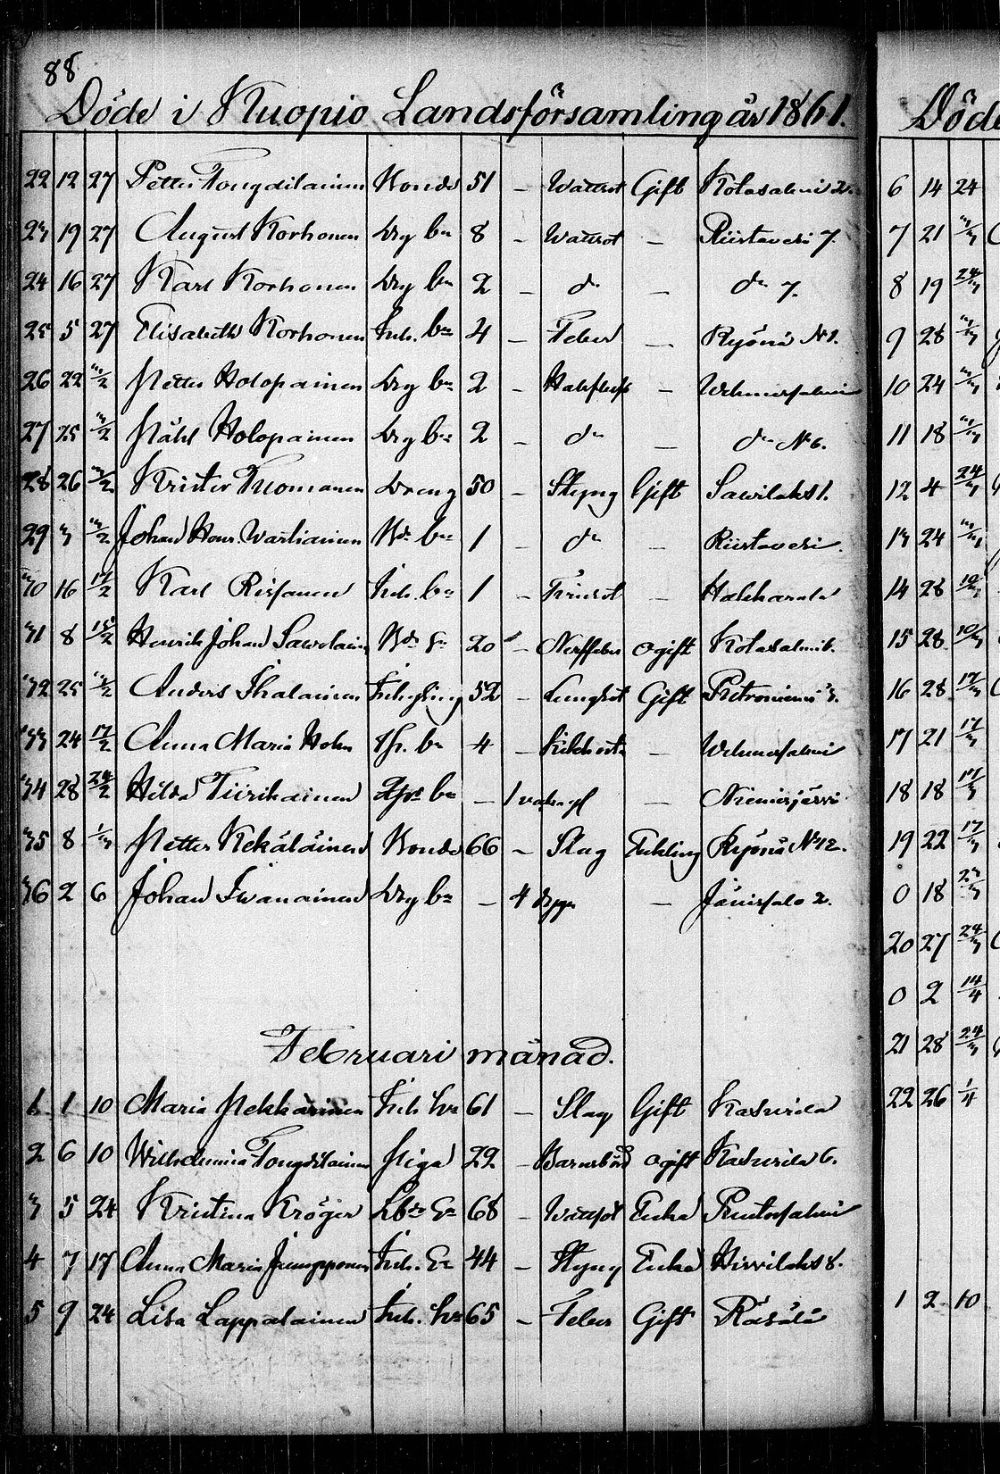 88
Döde i Kuopio Landsförsamling år 1861.
22 12 27 Petter Tougdilainen Bonde 51 – Wattsot Gift Kotasalmi 2.
23 19 27 August Korhonen Drg bn 8 – Wattsot – Riistavesi 7.
24 16 27 Karl Korhonen Drg bn 2 – do – do 7.
25 5 27 Elisabeth Korhonen Inh. bn 4 – Feber – Ryönä N 1.
26 22 3/2 Petter Holopainen Drg bn 2 – – Wehmersalmi
27 25 3/2 Påhl Holopainen Drg bn 2 – do – do N 6.
28 26 3/2 Krister Tuomainen Dreng 50 – Styng Gift Sawilaks 1.
29 3 3/2 Johan Henr. Wartiainen Bd. bn 1 – do – Riistavesi.
30 16 17/2 Karl Rissanen Inh. bn 1 – – Hakkarala
31 8 15/2 Henrik Johan Sawolainen Bde Sn 20 – Nerffeber ogift Kotasalmi 6.
32 25 Anders Ihalainen Inhysing 52 – Lungsot Gift
33 24 17/2 Anna Maria Holm bn 4 – Kikhosta – Wehmersalmi
34 28 24/2 Hilda Tiirikainen bn – 1 – Niemisjärvi
35 8 1/3 Petter Kekäläinen Bonde 66 – Slag Enkling Ryönä N 12.
36 2 6 Johan Iwanainen Drg bn – 4 dygn – Jänissalo 2.
Februari månad.
1 1 10 Maria Pekkarinen Inh. hu 61 – Slag Gift Kasurila
2 6 10 Wilhelmina Tougdilainen Piga 22 – Barnsbörd ogift Kasurila 6.
3 5 24 Kristina Kröger Ea 68 – Wattsot Enka Puutosalmi
4 7 17 Anna Maria Jumpponen Inh. Ea 44 – Styng Enka Hirvilaks 8.
5 9 24 Lisa Lappalainen Inh. hu 65 – Feber Gift Räsälä
Döde
6 14 24
7 21
8 19 24/3
9 28
10 24
11 18
12 4 24/3
13 24
14 28 10/3
15 28 10/3
16 28 17/3
17 21 17/3
18 18 17/3
19 22 17/3
0 18
20 27 24/3
0 2 14/4
21 28 24/3
22 26 1/4
1 2 10